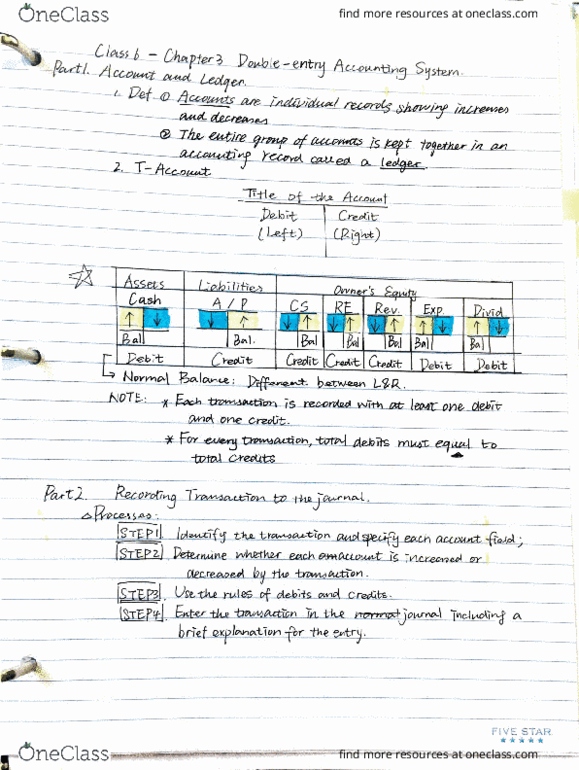 OneClass
find more resources at oneclass.com
Class 6 - Chapter 3 Double-entry Accounting System.
Part 1. Account and Ledger
1. Def ① Accounts are individual records showing increases
and decreases
② The entire group of accounts is kept together in an
accounting record called a ledger.
2. T-Account
Title of the Account
Debit Credit
(Left) (Right)
☆
Assets Liabilities Owner's Equity
Cash A/P CS RE Rev. Exp. Divid
↑ ↓ ↓ ↑ ↓ ↑ ↓ ↑ ↓ ↑ ↑ ↓ ↑ ↓
Bal Bal. Bal Bal Bal Bal Bal
Debit Credit Credit Credit Credit Debit Debit
→ Normal Balance: Different between L&R.
NOTE: * Each transaction is recorded with at least one debit
and one credit.
* For every transaction, total debits must equal to
total credits
Part 2. Recording Transaction to the journal.
△ Processes:
STEP1 Identify the transaction and specify each account field;
STEP2 Determine whether each account is increased or
decreased by the transaction.
STEP3. Use the rules of debits and credits.
STEP4. Enter the transaction in the journal including a
brief explanation for the entry.
FIVE STAR
★★★★★
OneClass
find more resources at oneclass.com